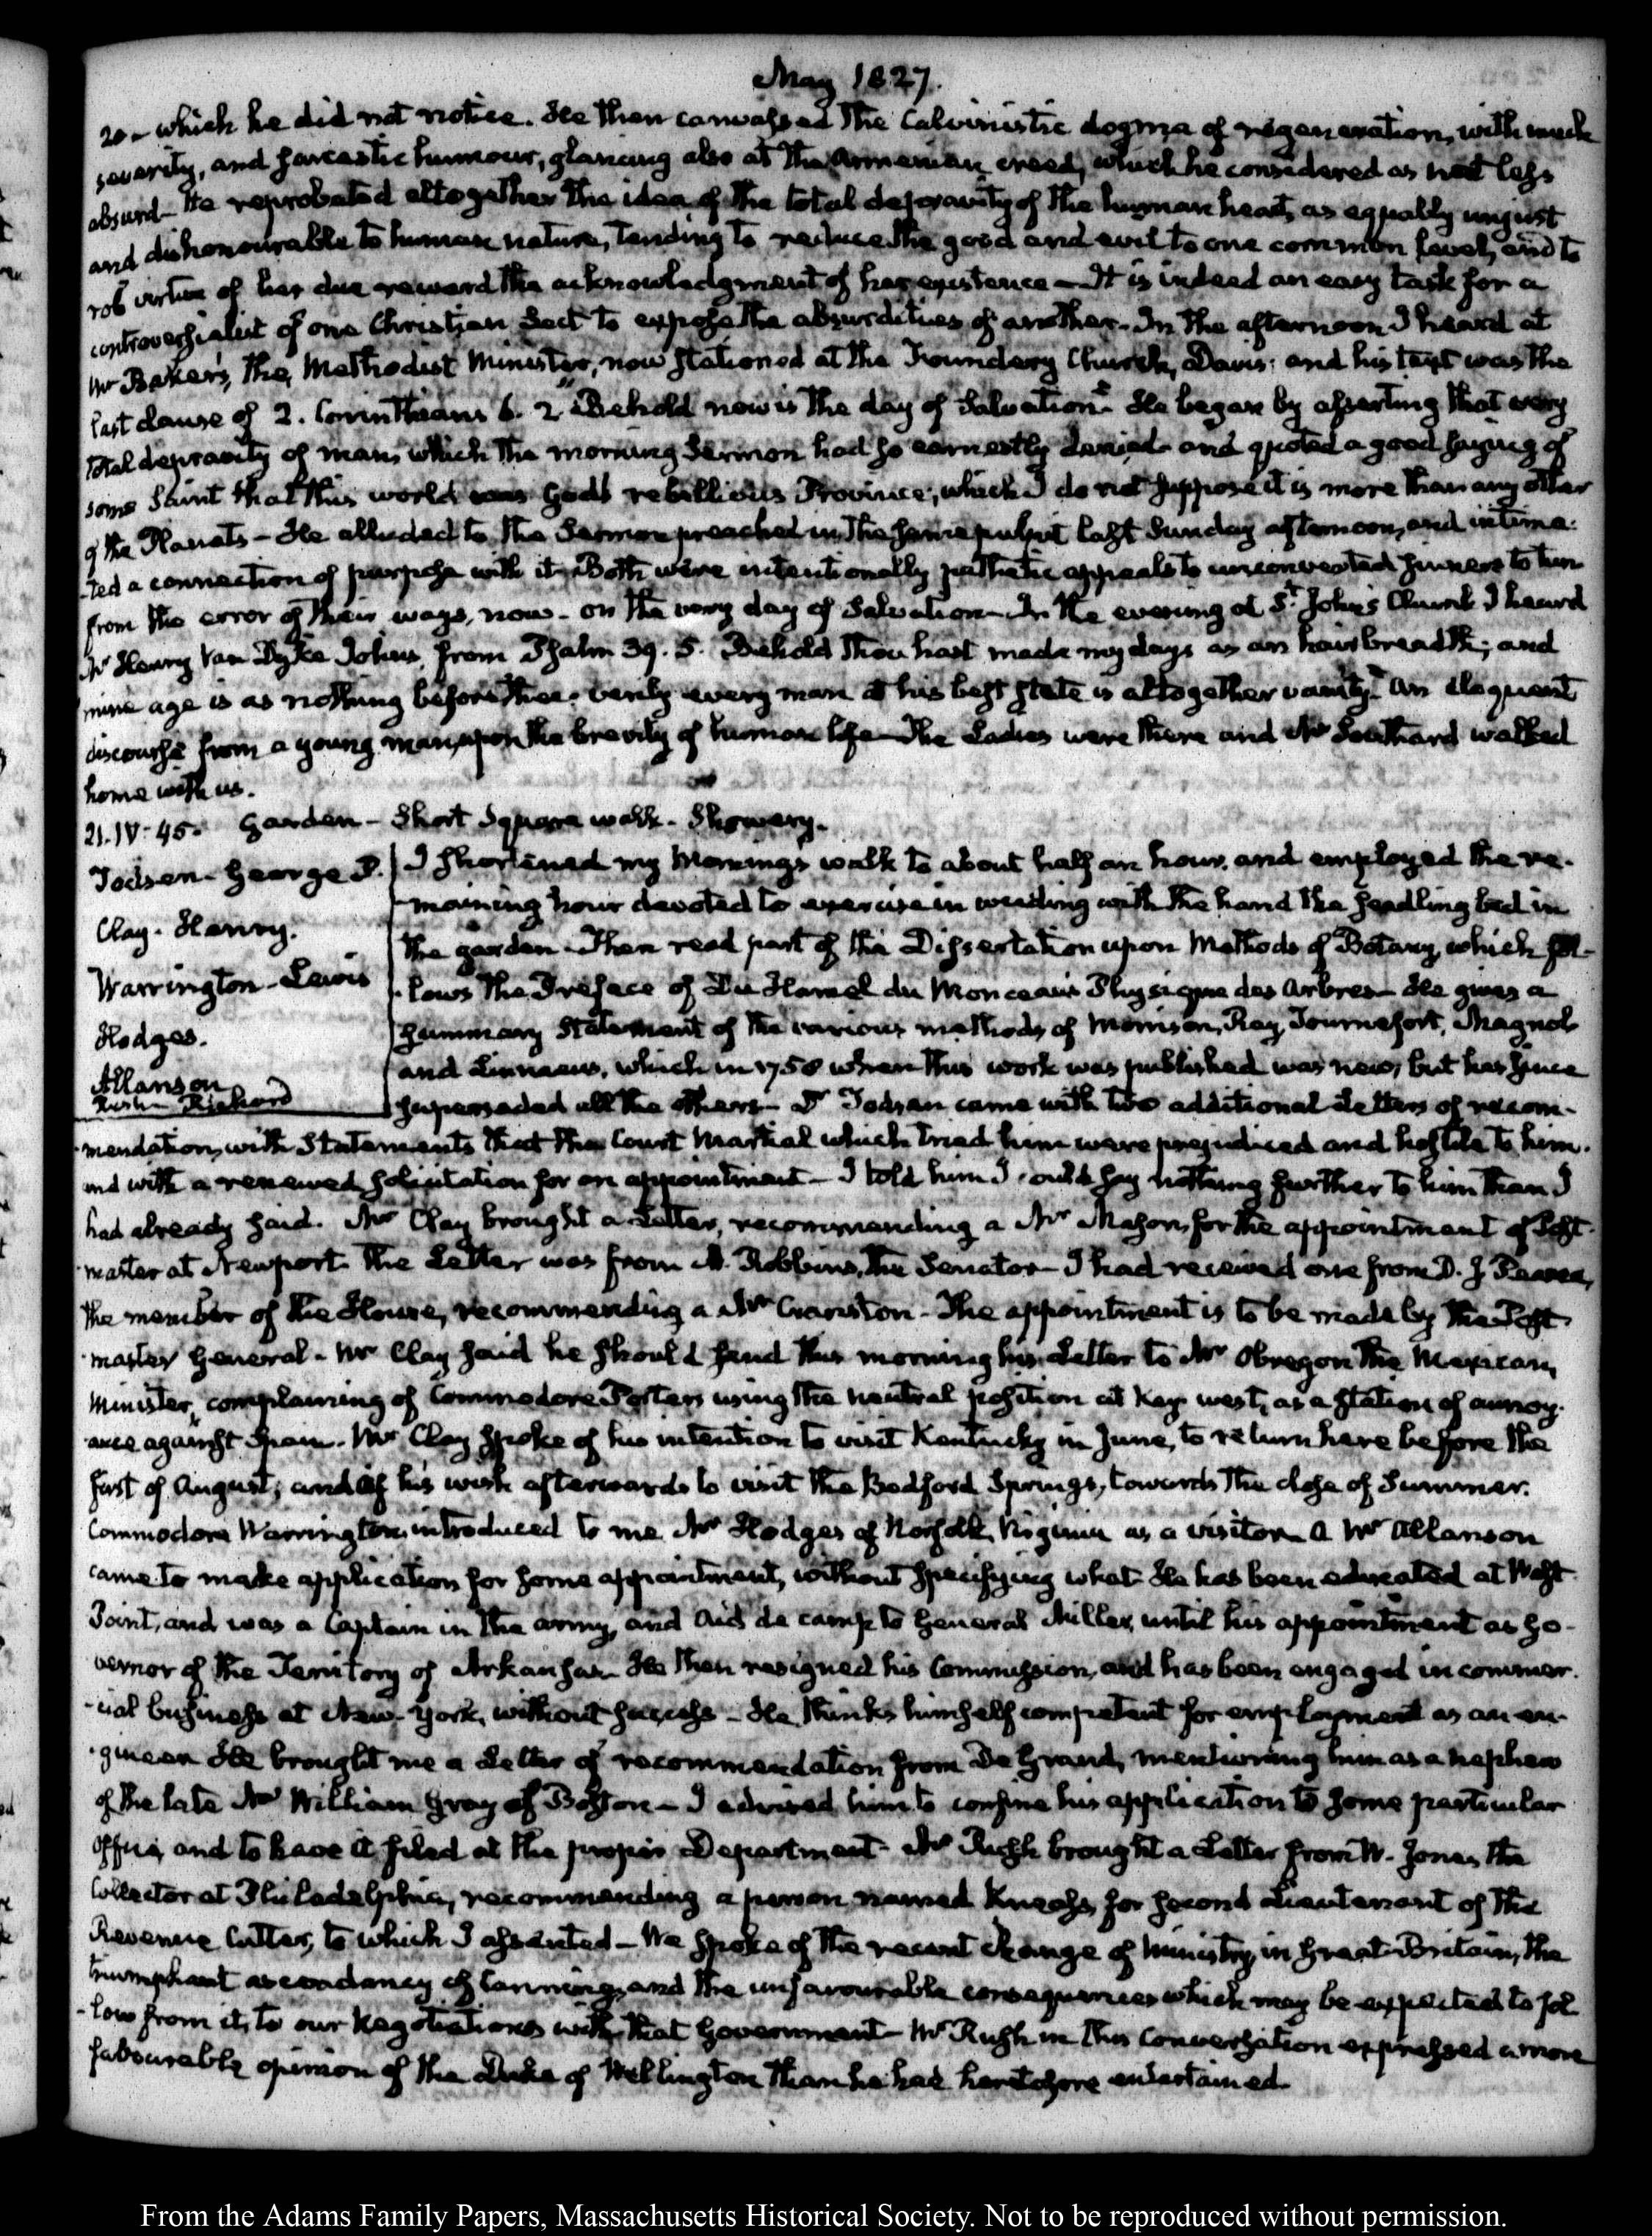 May 1827.
20 - which he did not notice. He then canvassed the Calvinistic dogma of regeneration, with much
severity, and sarcastic humour, glancing also at the Armenian creed, which he considered as not less
absurd - He reprobated altogether the idea of the total depravity of the human heart, as equally unjust
and dishonourable to human nature, tending to reduce the good and evil to one common level, and to
rob virtue of her due reward the acknowledgment of her existence - It is indeed an easy task for a
controversialist of one Christian Sect to expose the absurdities of another. In the afternoon I heard at
Mr Baker's, the Methodist Minister, now stationed at the Foundery Church, Davis: and his text was the
last clause of 2. Corinthians 6. 2 "Behold now is the day of Salvation" He began by asserting that very
total depravity of man, which the morning Sermon had so earnestly denied and quoted a good saying of
some Saint that this world was God's rebellious Province; which I do not suppose it is more than any other
of the Planets - He alluded to the Sermon preached in the same pulpit last Sunday afternoon, and intima-
-ted a connection of purpose with it. Both were intentionally pathetic appeals to unconverted sinners to turn
from the error of their ways, now - on the very day of Salvation - In the evening at St. John's Church I heard
Mr Henry Van Dyke Johns, from Psalm 39. 5. Behold thou hast made my days as an hair breadth; and
mine age is as nothing before thee: verily every man at his best state is altogether vanity." An eloquent
discourse from a young man, upon the brevity of human life - The Ladies were there and Mr Southard walked
home with us.
21. IV: 45. Garden - Short Square walk. Showery.
Todsen - George P.
Clay - Henry.
Warrington - Lewis
Hodges.
Allanson
Rush Richard
I shortened my Morning's walk to about half an hour, and employed the re-
-maining hour devoted to exercise in weeding with the hand the seedling bed in
the garden. Then read part of the Dissertation upon Methods of Botany, which fol-
-lows the Preface of Du Hamel du Monceau's Physique des Arbres - He gives a
summary Statement of the various methods of Morrison, Ray, Tournefort, Magnol
and Linnaeus, which in 1758 when this work was published was new, but has since
superseded all the others - Dr Todsen came with two additional Letters of recom-
-mendation, with Statements that the Court Martial which tried him were prejudiced and hostile to him.
and with a renewed solicitation for an appointment - I told him I could say nothing further to him than I
had already said. Mr Clay brought a Letter, recommending a Mr Mason, for the appointment of Post-
-master at Newport. The Letter was from A. Robbins, the Senator - I had received one from D. J. Pearce,
the member of the House, recommending a Mr Cranston - The appointment is to be made by the Post-
-master General. Mr Clay said he should send this morning his Letter to Mr Obregon the Mexican,
Minister, complaining of Commodore Porter's using the neutral position at Key west, as a station of annoy-
-ance against Spain. Mr Clay spoke of his intention to visit Kentucky in June, to return here before the
first of August; and of his wish afterwards to visit the Bedford Springs, towards the close of Summer.
Commodore Warrington introduced to me Mr Hodges of Norfolk, Virginia as a visitor. A Mr Allanson
came to make application for some appointment, without specifying what. He has been educated at West-
Point, and was a Captain in the army, and Aid de camp to General Miller, until his appointment as Go-
-vernor of the Territory of Arkansas - He then resigned his Commission, and has been engaged in commer-
-cial business at New-York, without success - He thinks himself competent for employment as an en-
-gineer. He brought me a Letter of recommendation from De Grand, mentioning him as a nephew
of the late Mr William Gray of Boston - I advised him to confine his application to some particular
office, and to have it filed at the proper Department - Mr Rush brought a Letter from W. Jones the
Collector at Philadelphia, recommending a person named Kneass, for second Lieutenant of the
Revenue Cutter, to which I assented - We spoke of the recent change of Ministry, in Great-Britain, the
triumphant ascendancy of Canning, and the unfavourable consequences which may be expected to fol-
-low from it, to our Negotiations with that Government - Mr Rush in this Conversation expressed a more
favourable opinion of the Duke of Wellington than he had heretofore entertained.
From the Adams Family Papers, Massachusetts Historical Society. Not to be reproduced without permission.